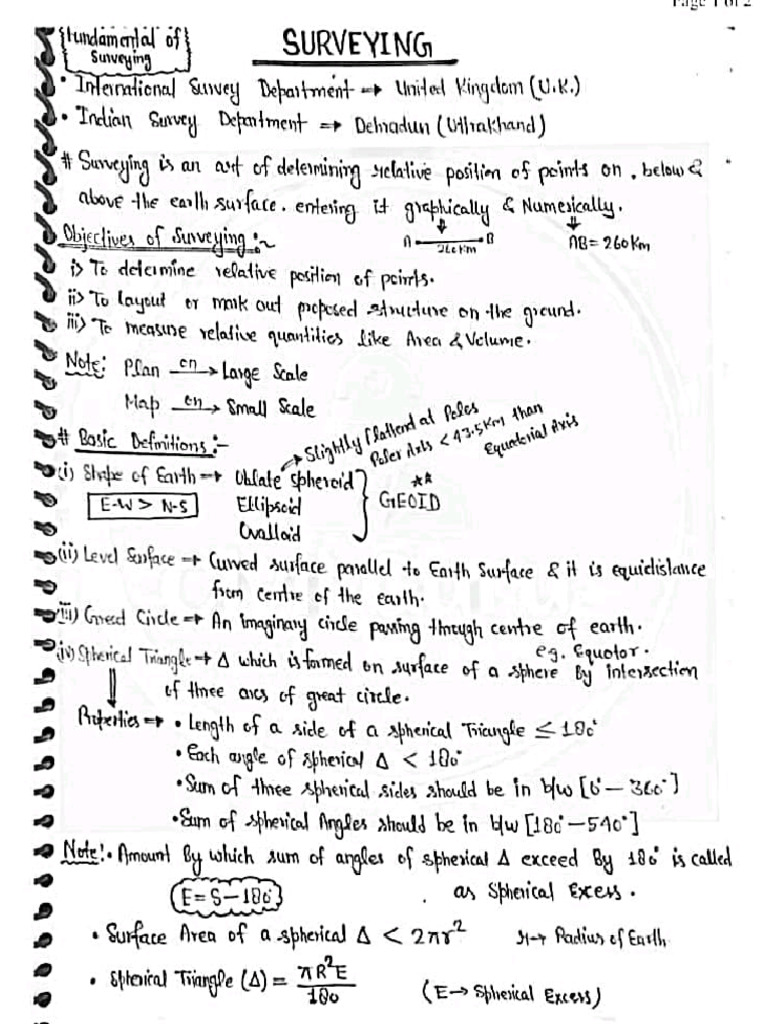 Page 1 of 2
Fundamental of
Surveying
SURVEYING
• International Survey Department → United Kingdom (U.K.)
• Indian Survey Department → Dehradun (Uthrakhand)
# Surveying is an art of determining relative position of points on, below &
above the earth surface. entering it graphically & Numerically.
A B
260 Km
AB = 260 Km
Objectives of Surveying :~
i> To determine relative position of points.
ii> To layout or mark out proposed structure on the ground.
iii> To measure relative quantities like Area & Volume.
Note: Plan on → Large Scale
Map on → Small Scale
Slightly Flattend at Poles
Poler Axis < 43.5 Km than
Equatorial Axis
# Basic Definitions :-
(i) Shape of Earth → Oblate Spheroid
E-W > N-S
Ellipsoid
Ovalloid
GEOID
(ii) Level Surface → Curved surface parallel to Earth Surface & it is equidistance
from centre of the earth.
(iii) Great Circle → An imaginary circle passing through centre of earth.
eg. Equator.
(iv) Spherical Triangle → Δ which is formed on surface of a sphere by intersection
of three arcs of great circle.
Properties → • Length of a side of a spherical Triangle ≤ 180°
• Each angle of spherical Δ < 180°
• Sum of three spherical sides should be in b/w [0° – 360°]
• Sum of spherical Angles should be in b/w [180° – 540°]
Note: • Amount By which sum of angles of spherical Δ exceed By 180° is called
E = S – 180°
as Spherical Excess.
• Surface Area of a spherical Δ < 2πr² r → Radius of Earth
• Spherical Triangle (Δ) = πR²E / 180 (E → Spherical Excess)